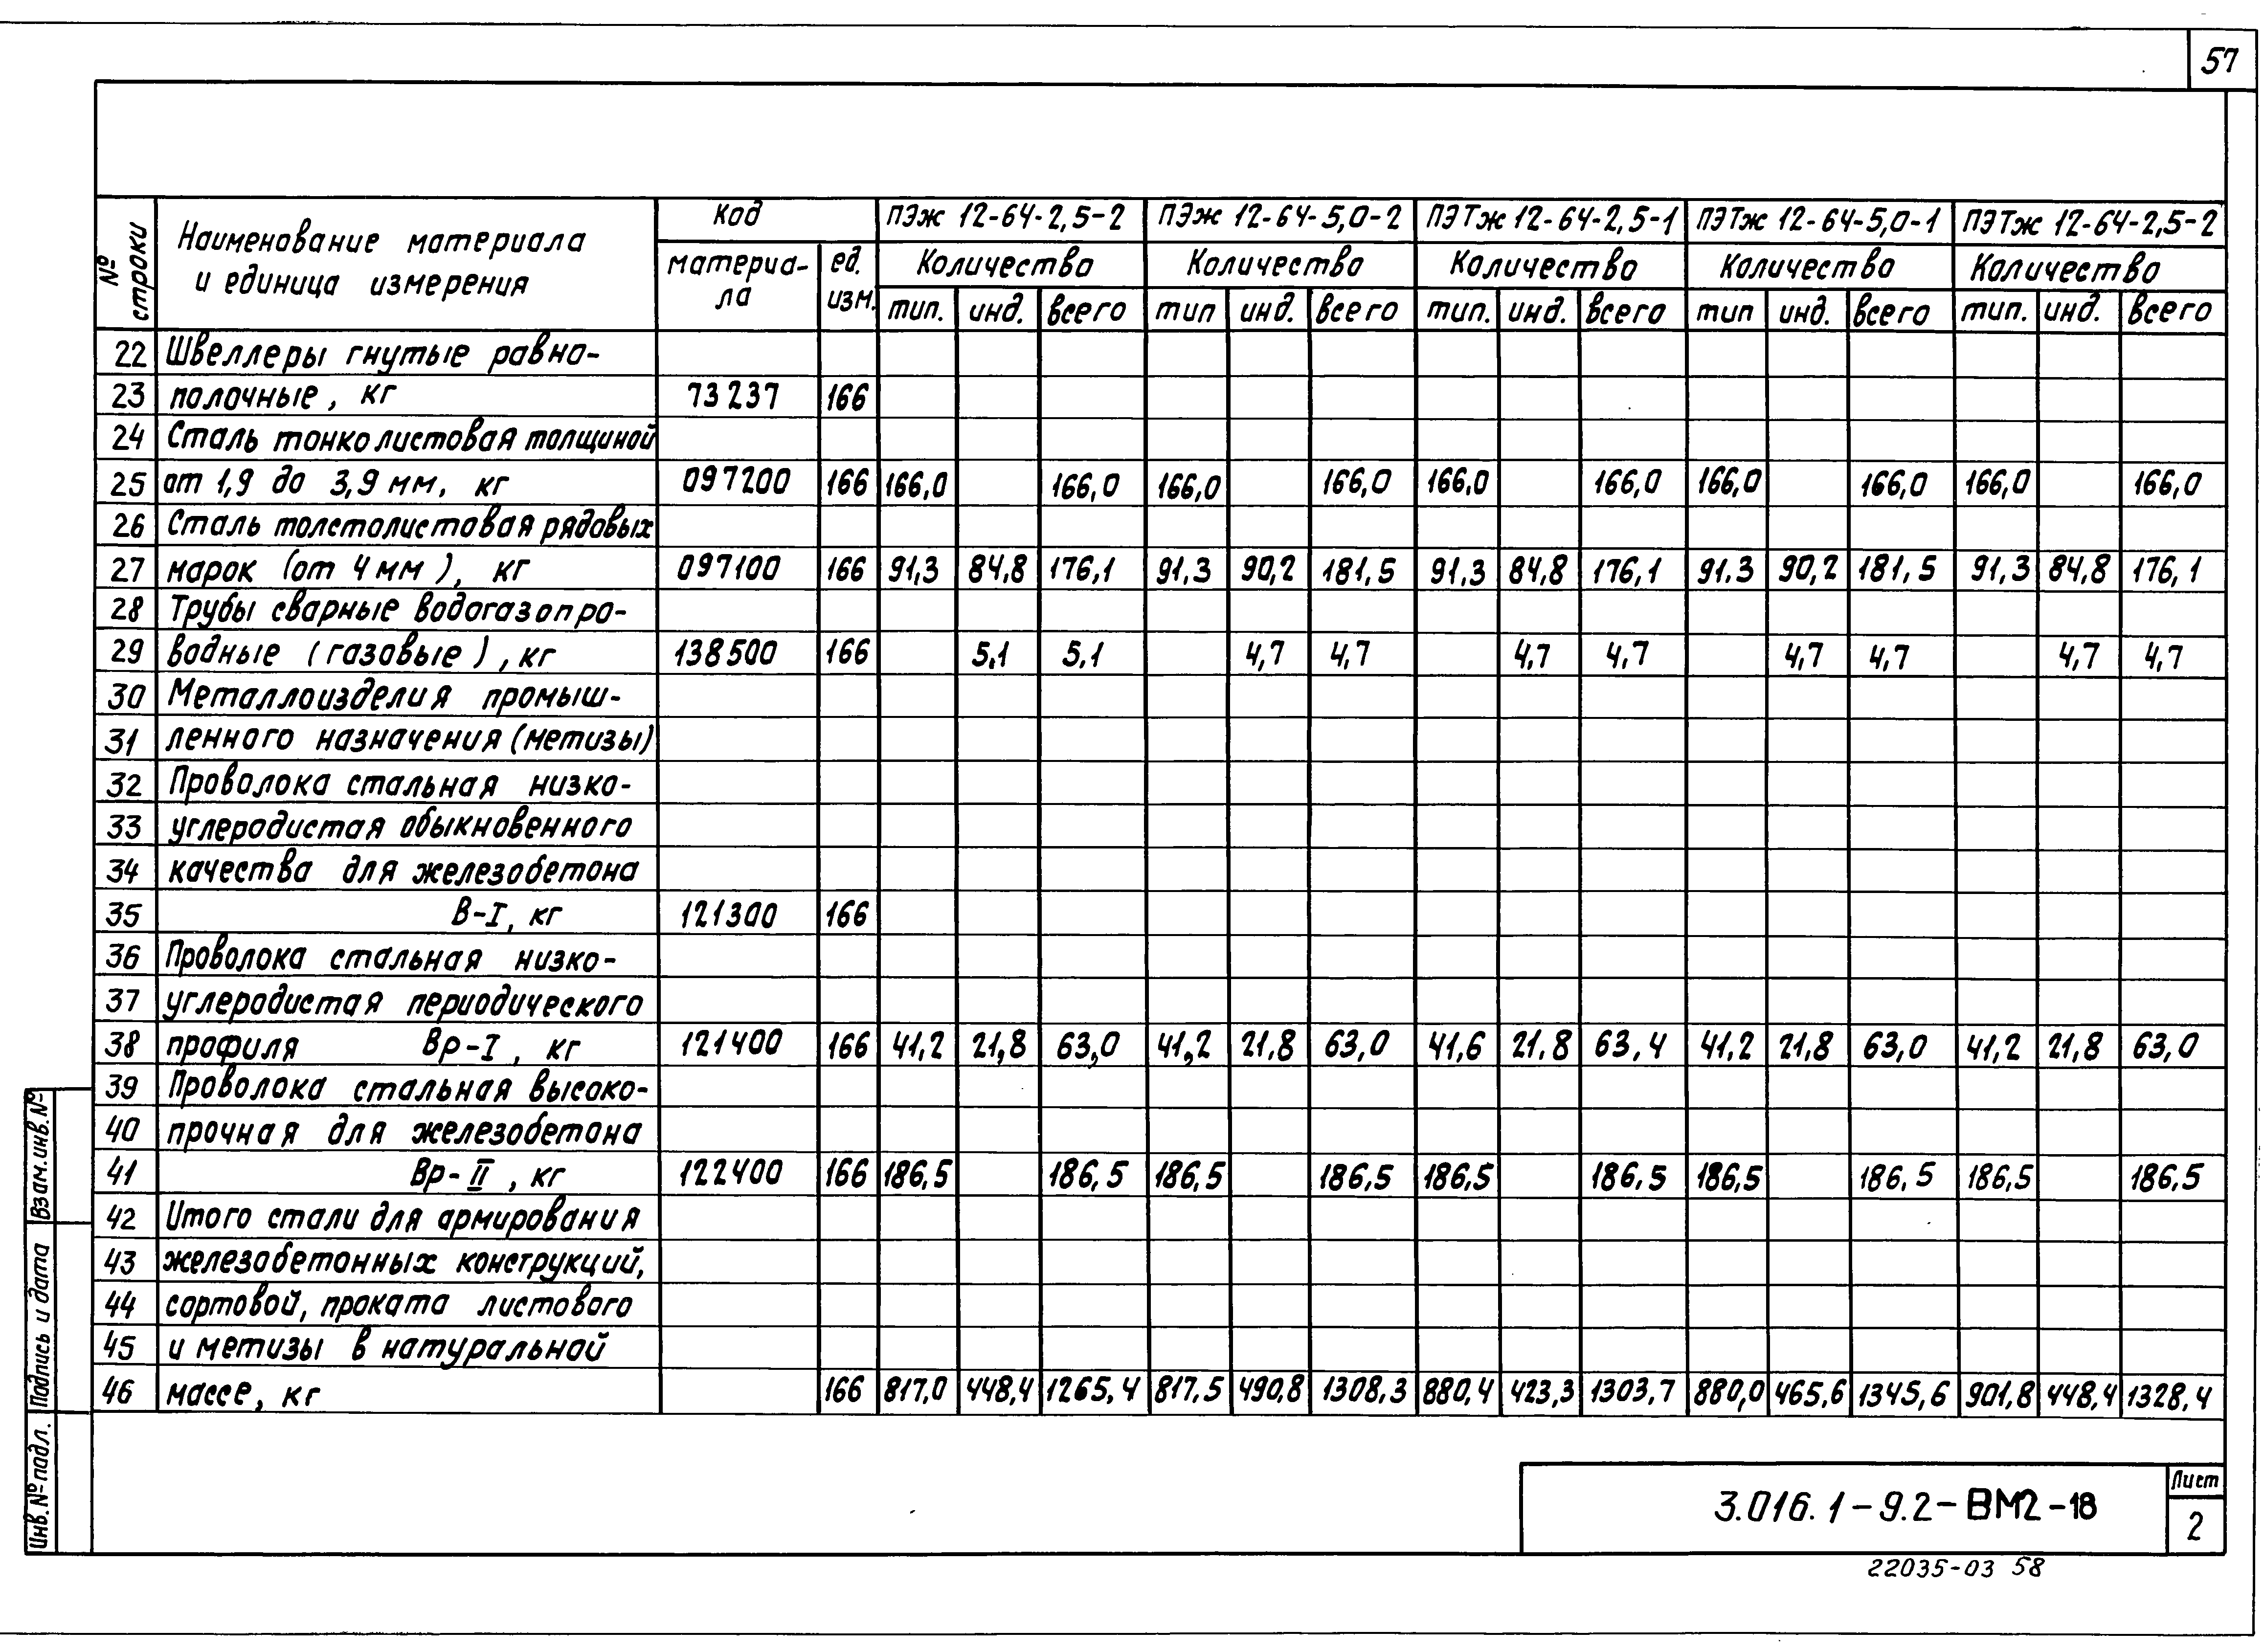 57
№ строки
Наименование материала
и единица измерения
Код
материа-
ла
ед.
изм.
ПЭж 12-64-2,5-2 ПЭж 12-64-5,0-2 ПЭТж 12-64-2,5-1 ПЭТж 12-64-5,0-1 ПЭТж 12-64-2,5-2
Количество Количество Количество Количество Количество
тип. инд. всего тип инд. всего тип. инд. всего тип инд. всего тип. инд. всего
22 Швеллеры гнутые равно-
23 полочные, кг 73237 166
24 Сталь тонколистовая толщиной
25 от 1,9 до 3,9 мм, кг 097200 166 166,0 166,0 166,0 166,0 166,0 166,0 166,0 166,0 166,0 166,0
26 Сталь толстолистовая рядовых
27 марок (от 4 мм), кг 097100 166 91,3 84,8 176,1 91,3 90,2 181,5 91,3 84,8 176,1 91.3 90,2 181,5 91,3 84,8 176,1
28 Трубы сварные водогазопро-
29 водные (газовые), кг 138500 166 5,1 5,1 4,7 4,7 4,7 4,7 4,7 4,7 4,7 4,7
30 Металлоизделия промыш-
31 ленного назначения (метизы)
32 Проволока стальная низко-
33 углеродистая обыкновенного
34 качества для железобетона
35 В-I, кг 121300 166
36 Проволока стальная низко-
37 углеродистая периодического
38 профиля Вр-I, кг 121400 166 41,2 21,8 63,0 41,2 21,8 63,0 41,6 21.8 63,4 41,2 21,8 63,0 41,2 21,8 63,0
39 Проволока стальная высоко-
40 прочная для железобетона
41 Вр-II, кг 122400 166 186,5 186,5 186,5 186,5 186,5 186,5 186,5 186,5 186,5 186,5
42 Итого стали для армирования
43 железобетонных конструкций,
44 сортовой, проката листового
45 и метизы в натуральной
46 массе, кг 166 817,0 448,4 1265,4 817,5 490,8 1308,3 880,4 423,3 1303,7 880,0 465,6 1345,6 901,8 448,4 1328,4
Взам.инв.№
Подпись и дата
Инв.№ подл.
3.016.1-9.2-ВМ2-18
Лист
2
22035-03 58